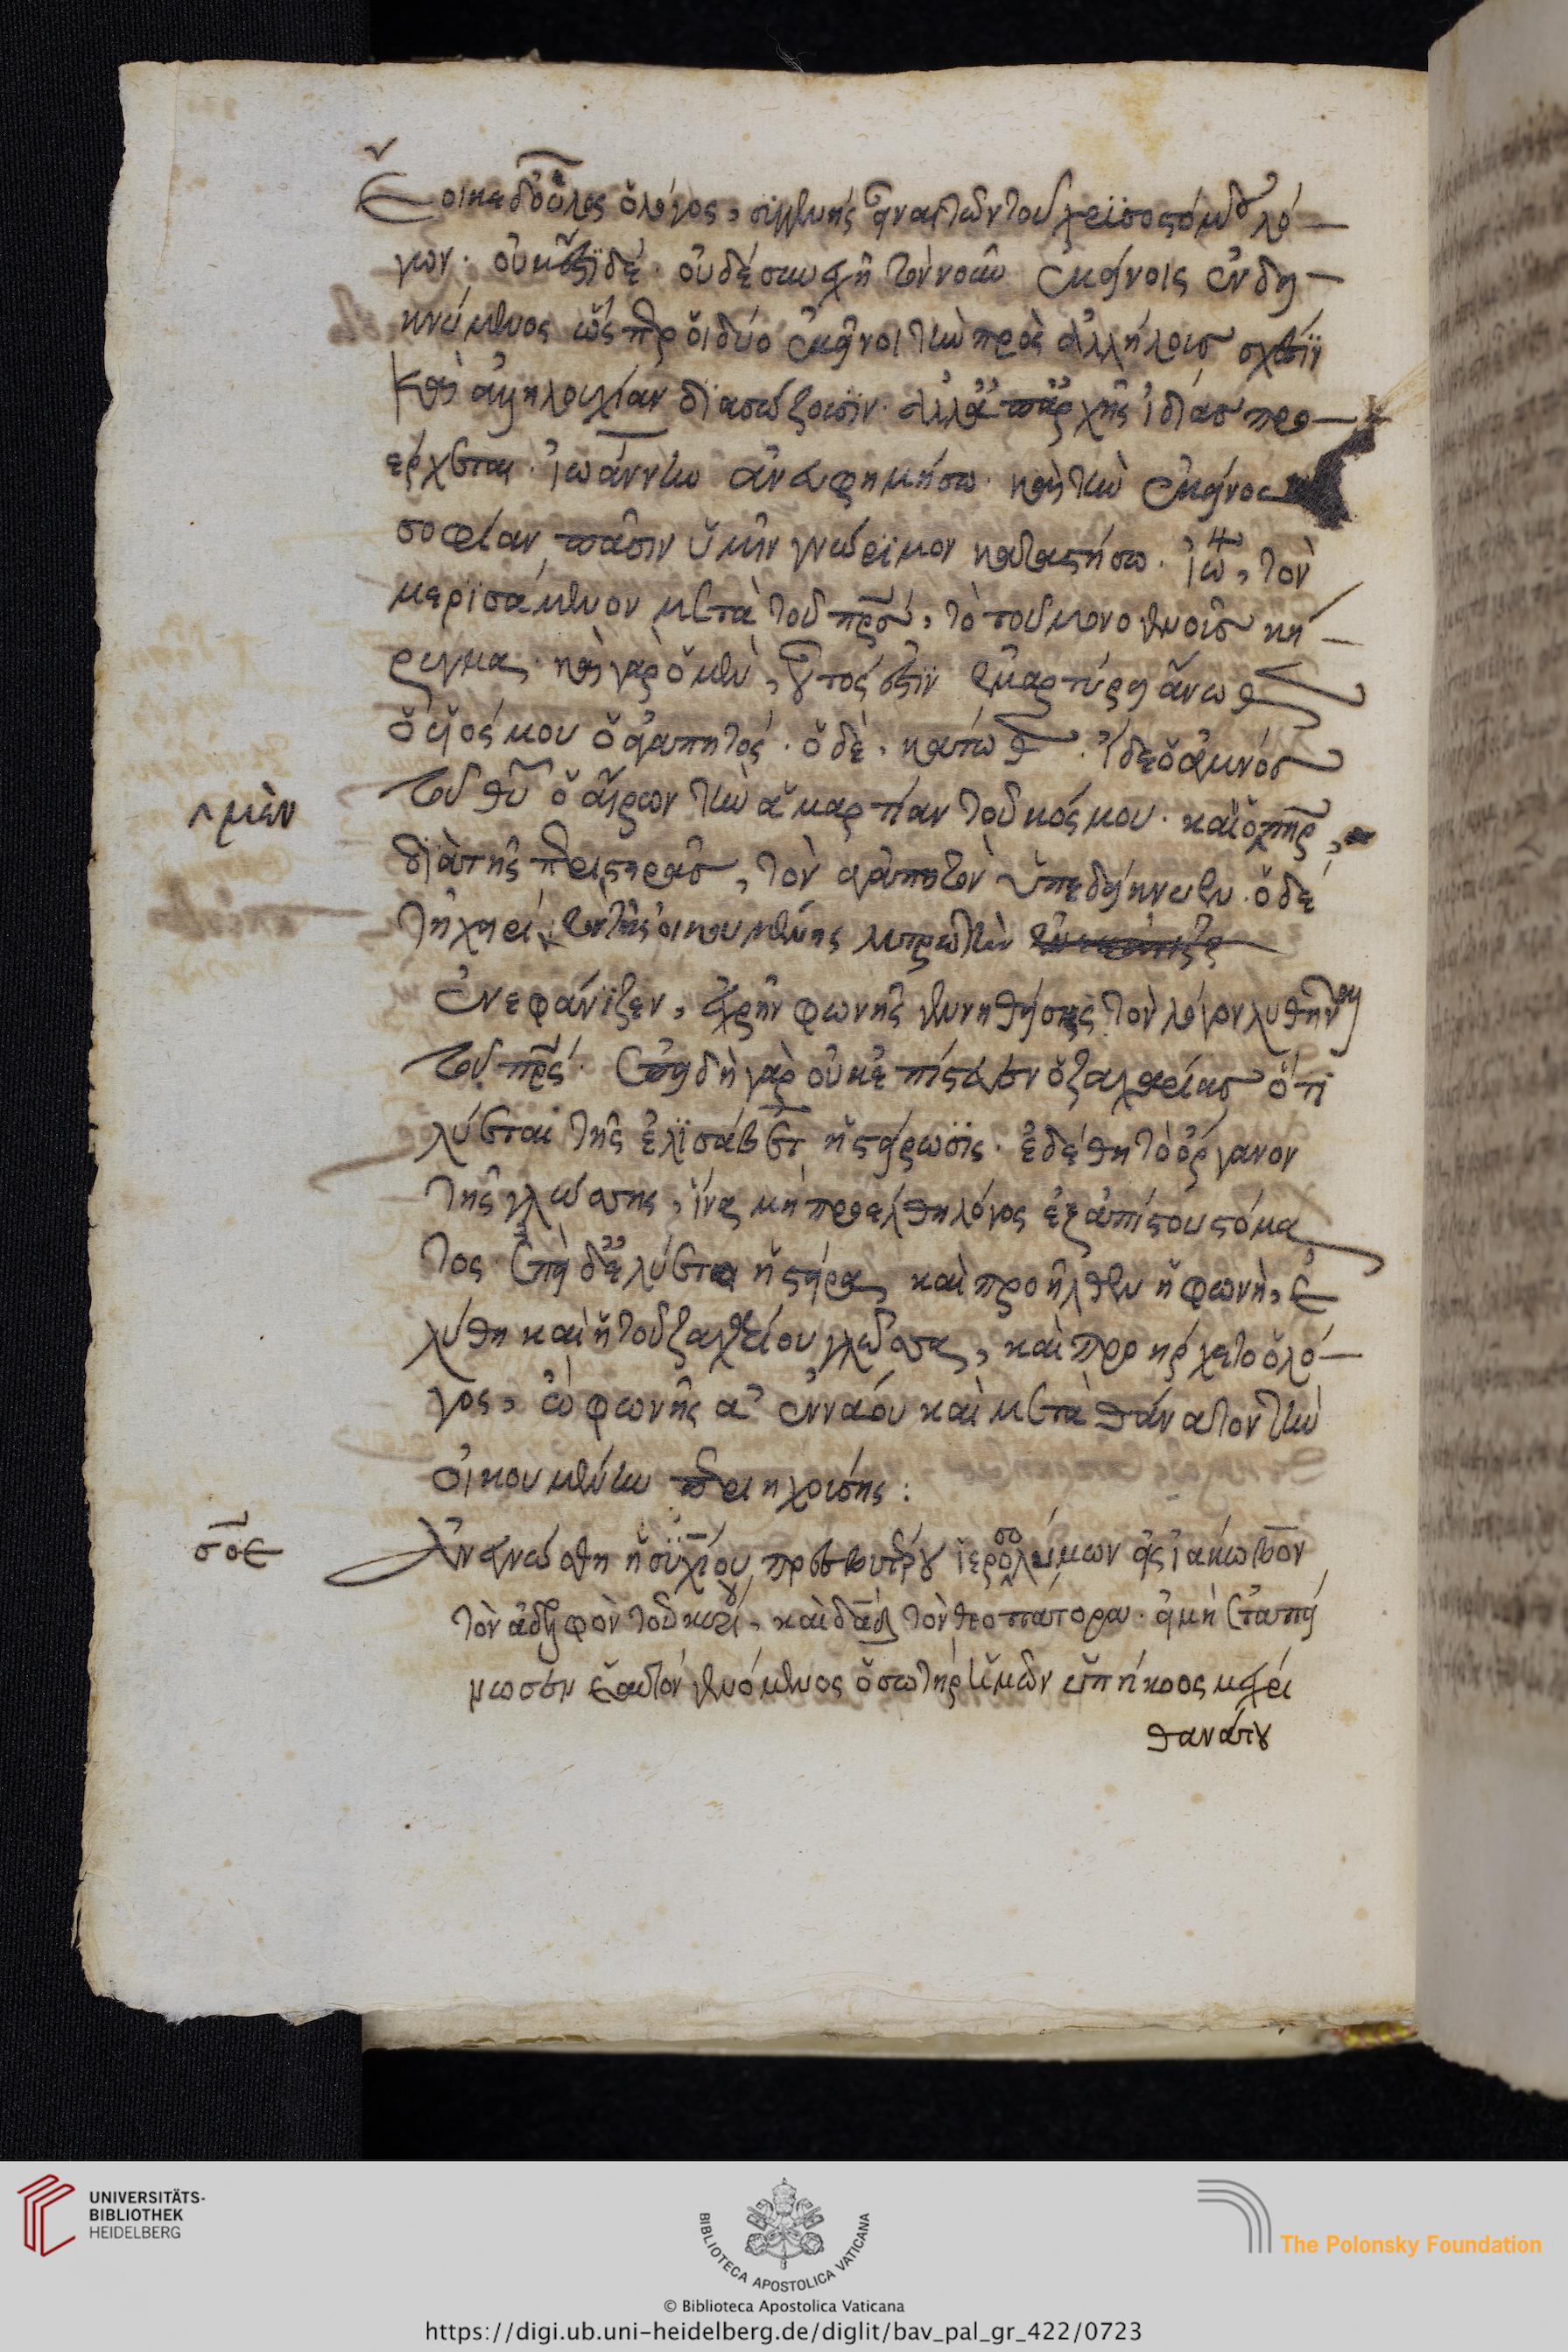 Ἔοικε δοῦλος ὁ λόγος, συγγενὴς εἶναι τῶν τοῦ χρυσοστόμου λό-
γων. οὐκ ἔστι δέ. οὐδέπω γὰρ τὸν νοῦν ἐκείνοις ἐνδει-
κνύμενος ὥσπερ οἱ δύο ἐκεῖνοι τὴν πρὸς ἀλλήλους σχέσιν
καὶ διασώζουσιν. ἀλλ' ἀπαρχῆς ἰδίας προ-
έρχεται. Ἰωάννην ἀνευφημήσω. καὶ τὴν ἐκείνου
σοφίαν πᾶσιν ὑμῖν γνώριμον καταστήσω. ἰω, τὸν
μερισάμενον μετὰ τοῦ πρς, τὸ τοῦ μονογενοῦς κή-
ρυγμα. καὶ γὰρ ὁ μὲν, οὗτός ἐστιν ἐμαρτύρει ἄνωθεν
ὁ υἱός μου ὁ ἀγαπητός. ὁ δὲ κάτωθεν. ἴδε ὁ ἀμνὸς
τοῦ θυ ὁ αἴρων τὴν ἁμαρτίαν τοῦ κόσμου. καὶ ὁ πηρ,
μὲν
διὰ τῆς περιστερᾶς, τὸν ἀγαπητὸν ὑπεδείκνυεν. ὁ δὲ
τῇ χειρὶ τὸν τῆς οἰκουμένης λυτρωτὴν
ἐνεφάνιζεν, ἐχρῆν φωνῆς γεννηθείσης τὸν λόγον λυθῆναι
τοῦ πρς. ἐπειδὴ γὰρ οὐκ ἐπίστευσεν ὁ ζαχαρίας ὅτι
λύεται τῆς ἐλισάβετ ἡ στείρωσις. ἐδέθη τὸ ὄργανον
τῆς γλώσσης, ἵνα μὴ προέλθῃ λόγος ἐξ ἀπίστου στόμα
τος. ἐπεὶ δὲ λύεται ἡ στεῖρα καὶ προῆλθεν ἡ φωνὴ, ἐ
λύθη καὶ ἡ τοῦ ζαχαρίου γλῶσσα, καὶ προήρχετο ὁ λό-
γος, ὦ φωνῆς ἀεννάου καὶ μετὰ θάνατον τὴν
οἰκουμένην περιηχούσης:
σοε
Ἀνεγνώσθη ἡσυχίου πρεσβυτέρου ἱεροσολύμων εἰς ἰάκωβον
τὸν ἀδελφὸν τοῦ κυρίου, καὶ δαδ τὸν θεοπάτορα. εἰ μὴ ἐταπεί
νωσεν ἑαυτὸν γενόμενος ὁ σωτὴρ ἡμῶν ὑπήκοος μέχρι
θανάτου
UNIVERSITÄTS-
BIBLIOTHEK
HEIDELBERG
BIBLIOTECA APOSTOLICA VATICANA
The Polonsky Foundation
© Biblioteca Apostolica Vaticana
https://digi.ub.uni-heidelberg.de/diglit/bav_pal_gr_422/0723